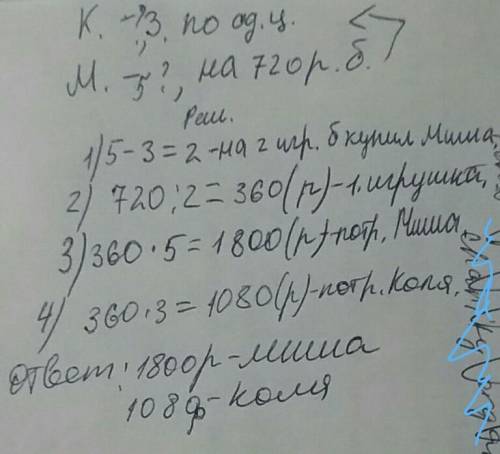 К. - ?, 3. по од.ц.
М. - 5 ?, на 720 р. б.
Реш.
1) 5 - 3 = 2 - на 2 игр. б купил Миша,
2) 720 : 2 = 360 (р) - 1. игрушка,
3) 360 · 5 = 1800 (р) - потр. Миша
4) 360 · 3 = 1080 (р) - потр. Коля.
Ответ: 1800р - Миша
1080р - Коля